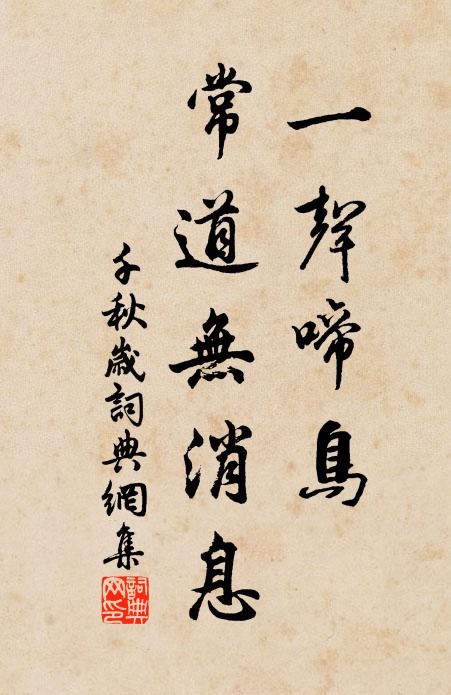 一聲啼鳥
常道無消息
千秋歲詞典網集
詞典網印